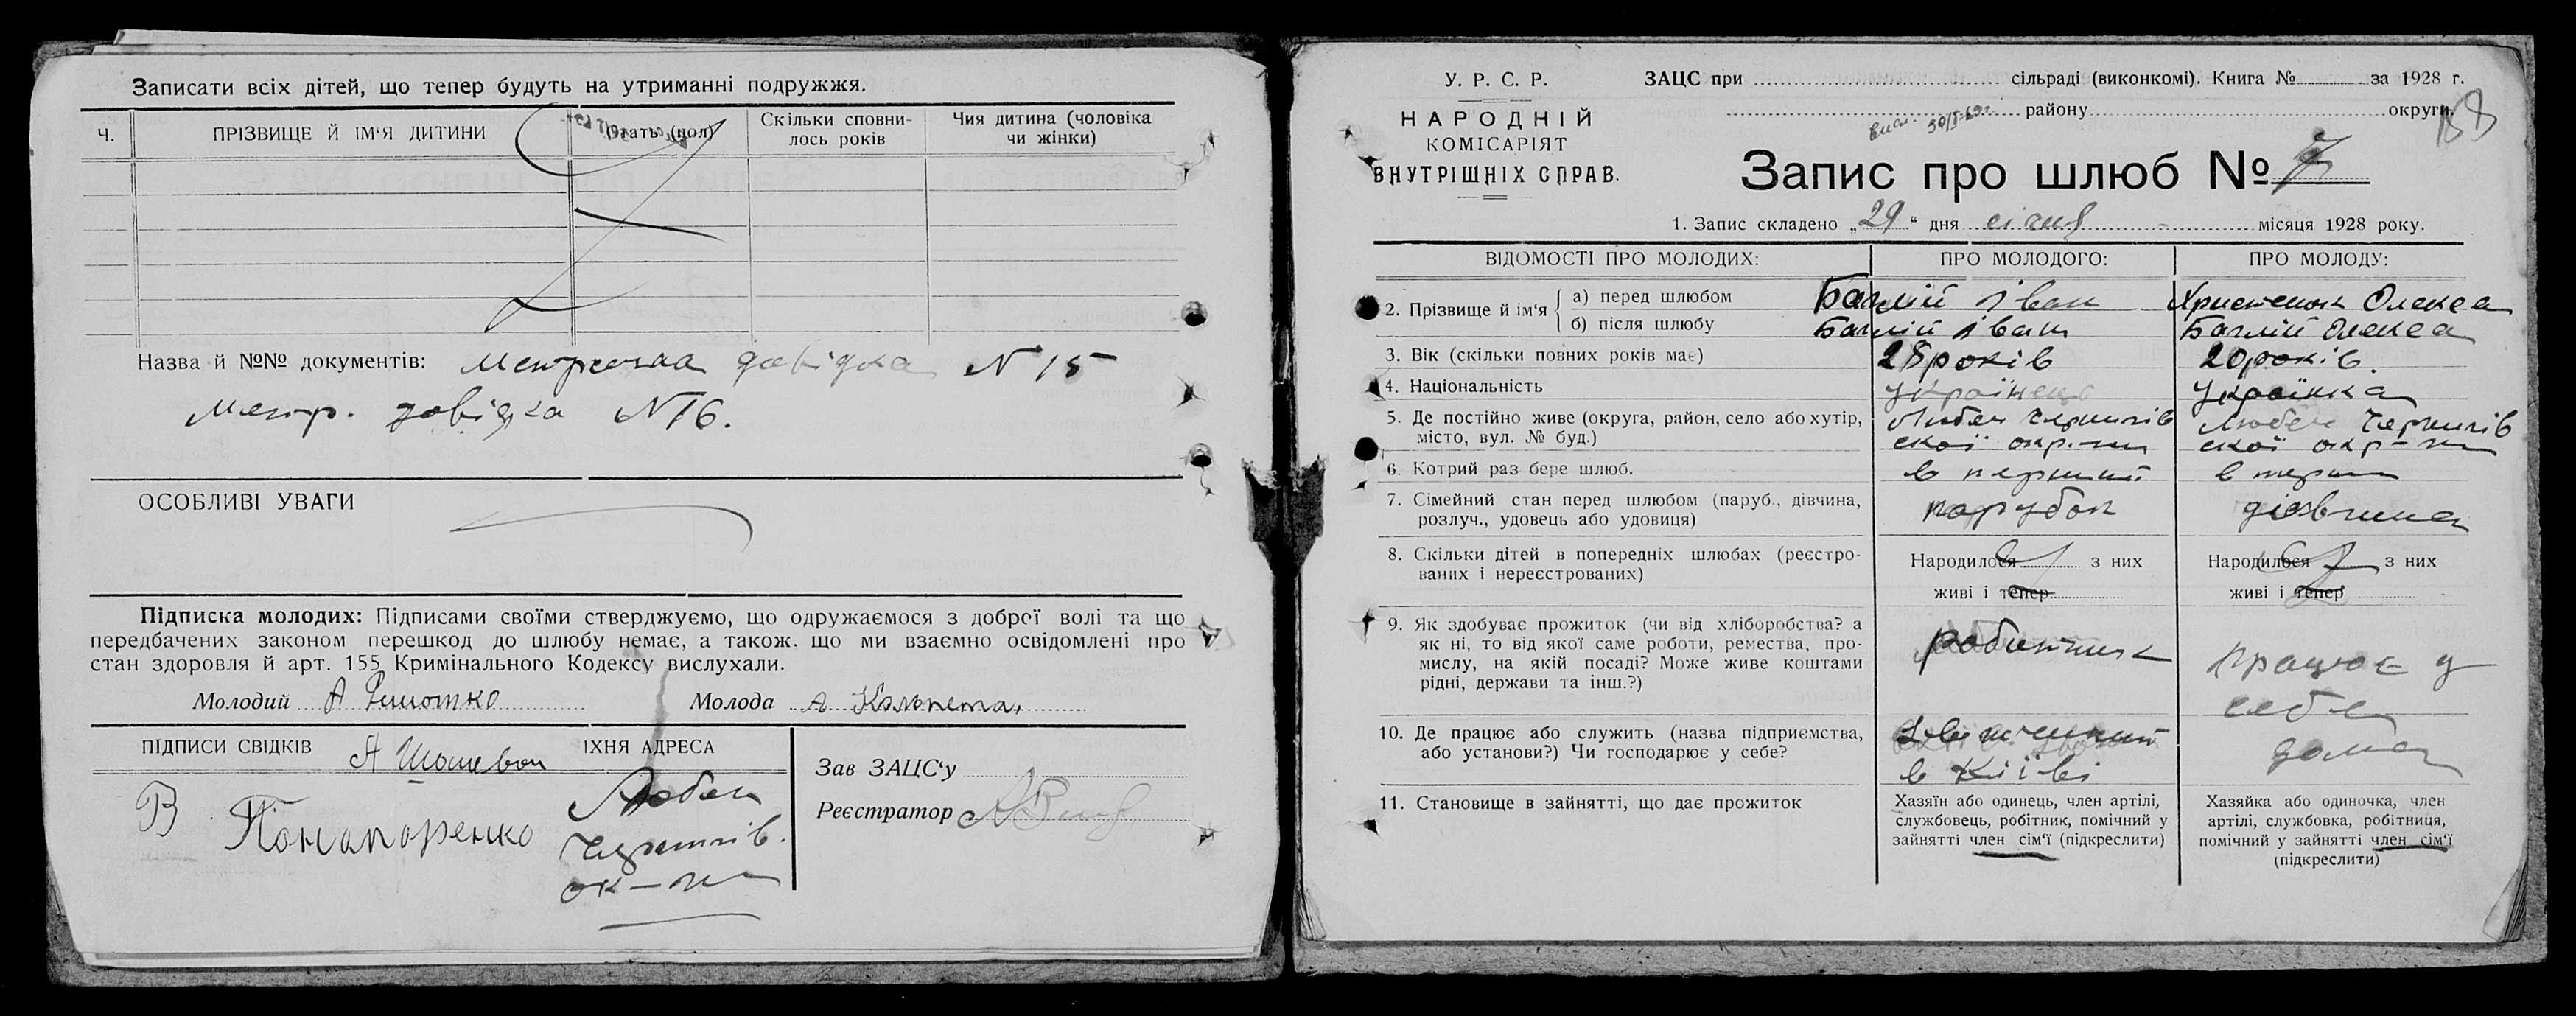 Записати всіх дітей, що тепер будуть на утриманні подружжя.
Ч.
ПРІЗВИЩЕ Й ІМ'Я ДИТИНИ
Стать (пол)
Скільки сповни-
лось років
Чия дитина (чоловіка
чи жінки)
Назва й №№ документів: Метрична довідка N 15
Метр. довідка N 16.
ОСОБЛИВІ УВАГИ
Підписка молодих: Підписами своїми стверджуємо, що одружаємося з доброї волі та що
передбачених законом перешкод до шлюбу немає, а також. що ми взаємно освідомлені про
стан здоровля й арт. 155 Кримінального Кодексу вислухали.
Молодий А
Молода
ПІДПИСИ СВІДКІВ
ІХНЯ АДРЕСА
В Пономаренко
Любеч
Чернигів.
ок-ги
Зав ЗАЦС'у
Реєстратор
У. Р. С. Р.
НАРОДНІЙ
КОМІСАРІЯТ
ВНУТРІШНІХ СПРАВ.
ЗАЦС при сільраді (виконкомі). Книга № за 1928 г.
району округи.
Запис про шлюб № 7
1. Запис складено „29“ дня січня місяця 1928 року.
ВІДОМОСТІ ПРО МОЛОДИХ:
ПРО МОЛОДОГО:
ПРО МОЛОДУ:
2. Прізвище й ім'я
а) перед шлюбом
Баглій Іван
Христенок Олекса
б) після шлюбу
Баглій Іван
Баглій Олекса
3. Вік (скільки повних років має)
28 років
20 років.
4. Національність
українець
українка
5. Де постійно живе (округа, район, село або хутір,
місто, вул. № буд.)
Любеч Чернигів
ської окр-ги
Любеч Чернигів
ської окр-ги
6. Котрий раз бере шлюб.
в перший
в перш
7. Сімейний стан перед шлюбом (паруб., дівчина,
розлуч., удовець або удовиця)
парубок
дівчина
8. Скільки дітей в попередніх шлюбах (реєстро-
ваних і нереєстрованих)
Народилося з них
живі і тепер
Народилося з них
живі і тепер
9. Як здобуває прожиток (чи від хліборобства? а
як ні, то від якої саме роботи, ремества, про-
мислу, на якій посаді? Може живе коштами
рідні, держави та інш.?)
робитник
Працює у
себе
10. Де працює або служить (назва підприємства,
або установи?) Чи господарює у себе?
в Київі
дома
11. Становище в зайнятті, що дає прожиток
Хазяїн або одинець, член артілі,
службовець, робітник, помічний у
зайнятті член сім'ї (підкреслити)
Хазяйка або одиночка, член
артілі, службовка, робітниця,
помічний у зайнятті член сім'ї
(підкреслити)